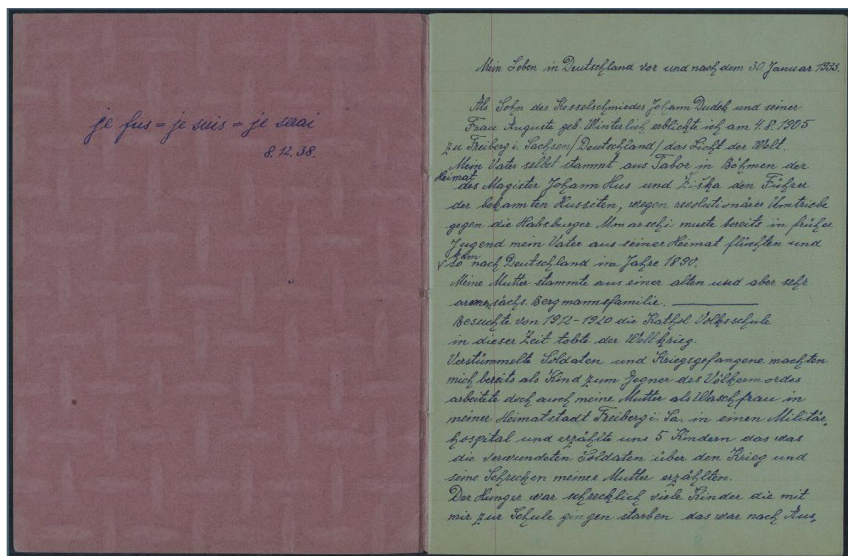 je fus = je suis = je serai
8.12.38.
Mein Leben in Deutschland vor und nach dem 30. Januar 1933.
Als Sohn des Kesselschmiedes Johann Dudek und seiner
Frau Auguste geb. Winterlich erblickte ich am 4.8.1905
zu Freiberg i. Sachsen/Deutschland/das Licht der Welt.
Mein Vater selbst stammt aus Tabor in Böhmen der
Heimat des Magister Johann Hus und Ziska den Führer
der bekannten Hussiten, wegen revolutionärer Umtriebe
gegen die Habsburger Monarschi muste bereits in früher
Jugend mein Vater aus seiner Heimat flüchten und
kam so nach Deutschland im Jahre 1890.
Meine Mutter stammte aus einer alten und aber sehr
armen sächs. Bergmannsfamilie.
Besuchte von 1912-1920 die Kathol Volksschule
in dieser Zeit tobte der Weltkrieg.
Verstümmelte Soldaten und Kriegsgefangene machten
mich bereits als Kind zum Gegner des Völkermordes
arbeitete doch auch meine Mutter als Waschfrau in
meiner Heimatstadt Freiberg i Sa. in einen Militär-
hospital und erzählte uns 5 Kindern das was
die verwundeten Soldaten über den Krieg und
seine Schrecken meiner Mutter erzählten.
Der Hunger war schrecklich viele Kinder die mit
mir zur Schule gingen starben das war nach Aus-